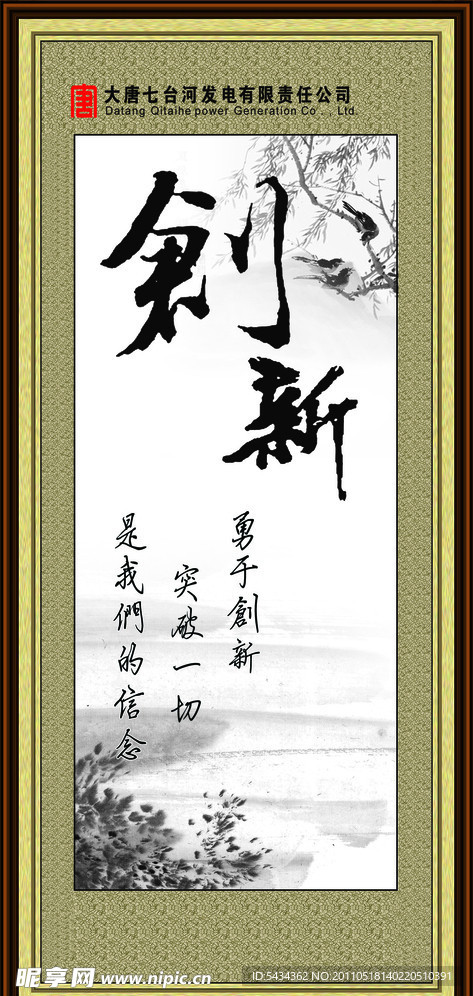 唐 大唐七台河发电有限责任公司
Datang Qitaihe power Generation Co . , Ltd.
創
新
勇于創新
突破一切
是我們的信念
昵享网 www.nipic.cn
ID:5434362 NO:20110518140220510391